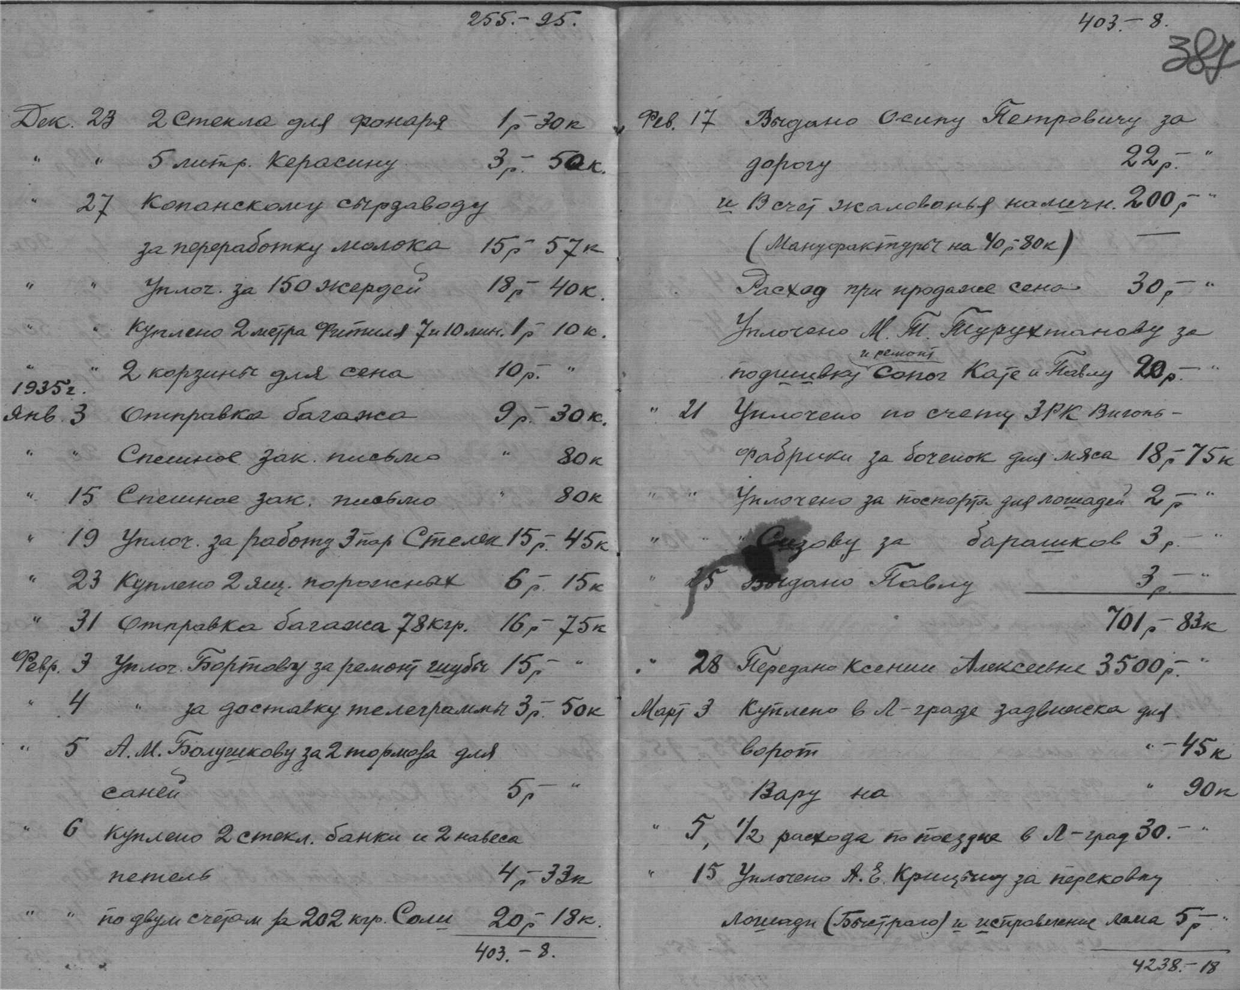 255.-95.
Дек. 23 2 стекла для фонаря 1р-30к
" " 5 литр. Керасину 3р.- 50к.
" 27 Копанскому сырзаводу
за переработку молока 15р- 57к
" " Уплоч. за 150 жердей 18р- 40к.
" " Куплено 2 метра Фитиля 7 и 10 лин. 1р- 10к.
" " 2 корзины для сена 10р.- "
1935г.
Янв. 3 Отправка багажа 9р- 30к.
" " Спешное зак. письмо " 80к
" 15 Спешное зак. письмо " 80к
" 19 Уплоч. за работу 3 пар Стелек 15р- 45к
" 23 Куплено 2 ящ. порожных 6р- 15к
" 31 Отправка багажа 78 кгр. 16р- 75к
Февр. 3 Уплоч. Бортову за ремонт шубы 15р- "
" 4 " за доставку телеграммы 3р- 50к
" 5 А. М. Болушкову за 2 тормоза для
саней 5р- "
" 6 Куплено 2 стекл. банки и 2 навеса
петель 4р-33к
" " по двум счетам за 202 кгр. Соли 20р- 18к.
403.-8.
403.-8.
387
Фев. 17 Выдано Осипу Петровичу за
дорогу 22р.- "
и В счет жалованья наличн. 200р- "
(Мануфактуры на 40р-80к) —
Расход при продаже сена 30р- "
Уплочено М. Т. Турухтанову за
и ремонт
подшивку сапог Кате и Павлу 20р.- "
" 21 Уплочено по счету ЗРК Вигонь-
фабрики за боченок для мяса 18р-75к
" " Уплочено за паспорта для лошадей 2р- "
" " " Сизову за барашков 3р.- "
" 25 Выдано Павлу 3р.- "
701р- 83к
" 28 Передано Ксении Алексеевне 3500р.- "
Март 3 Куплено в Л-граде задвижка для
ворот "-45к
Вару на " 90к
" 5, 1/2 расхода по поездке в Л-град 30.- "
" 15 Уплочено А. Е. за перековку
лошади (Быстрого) и исправление лома 5р- "
4238.-18